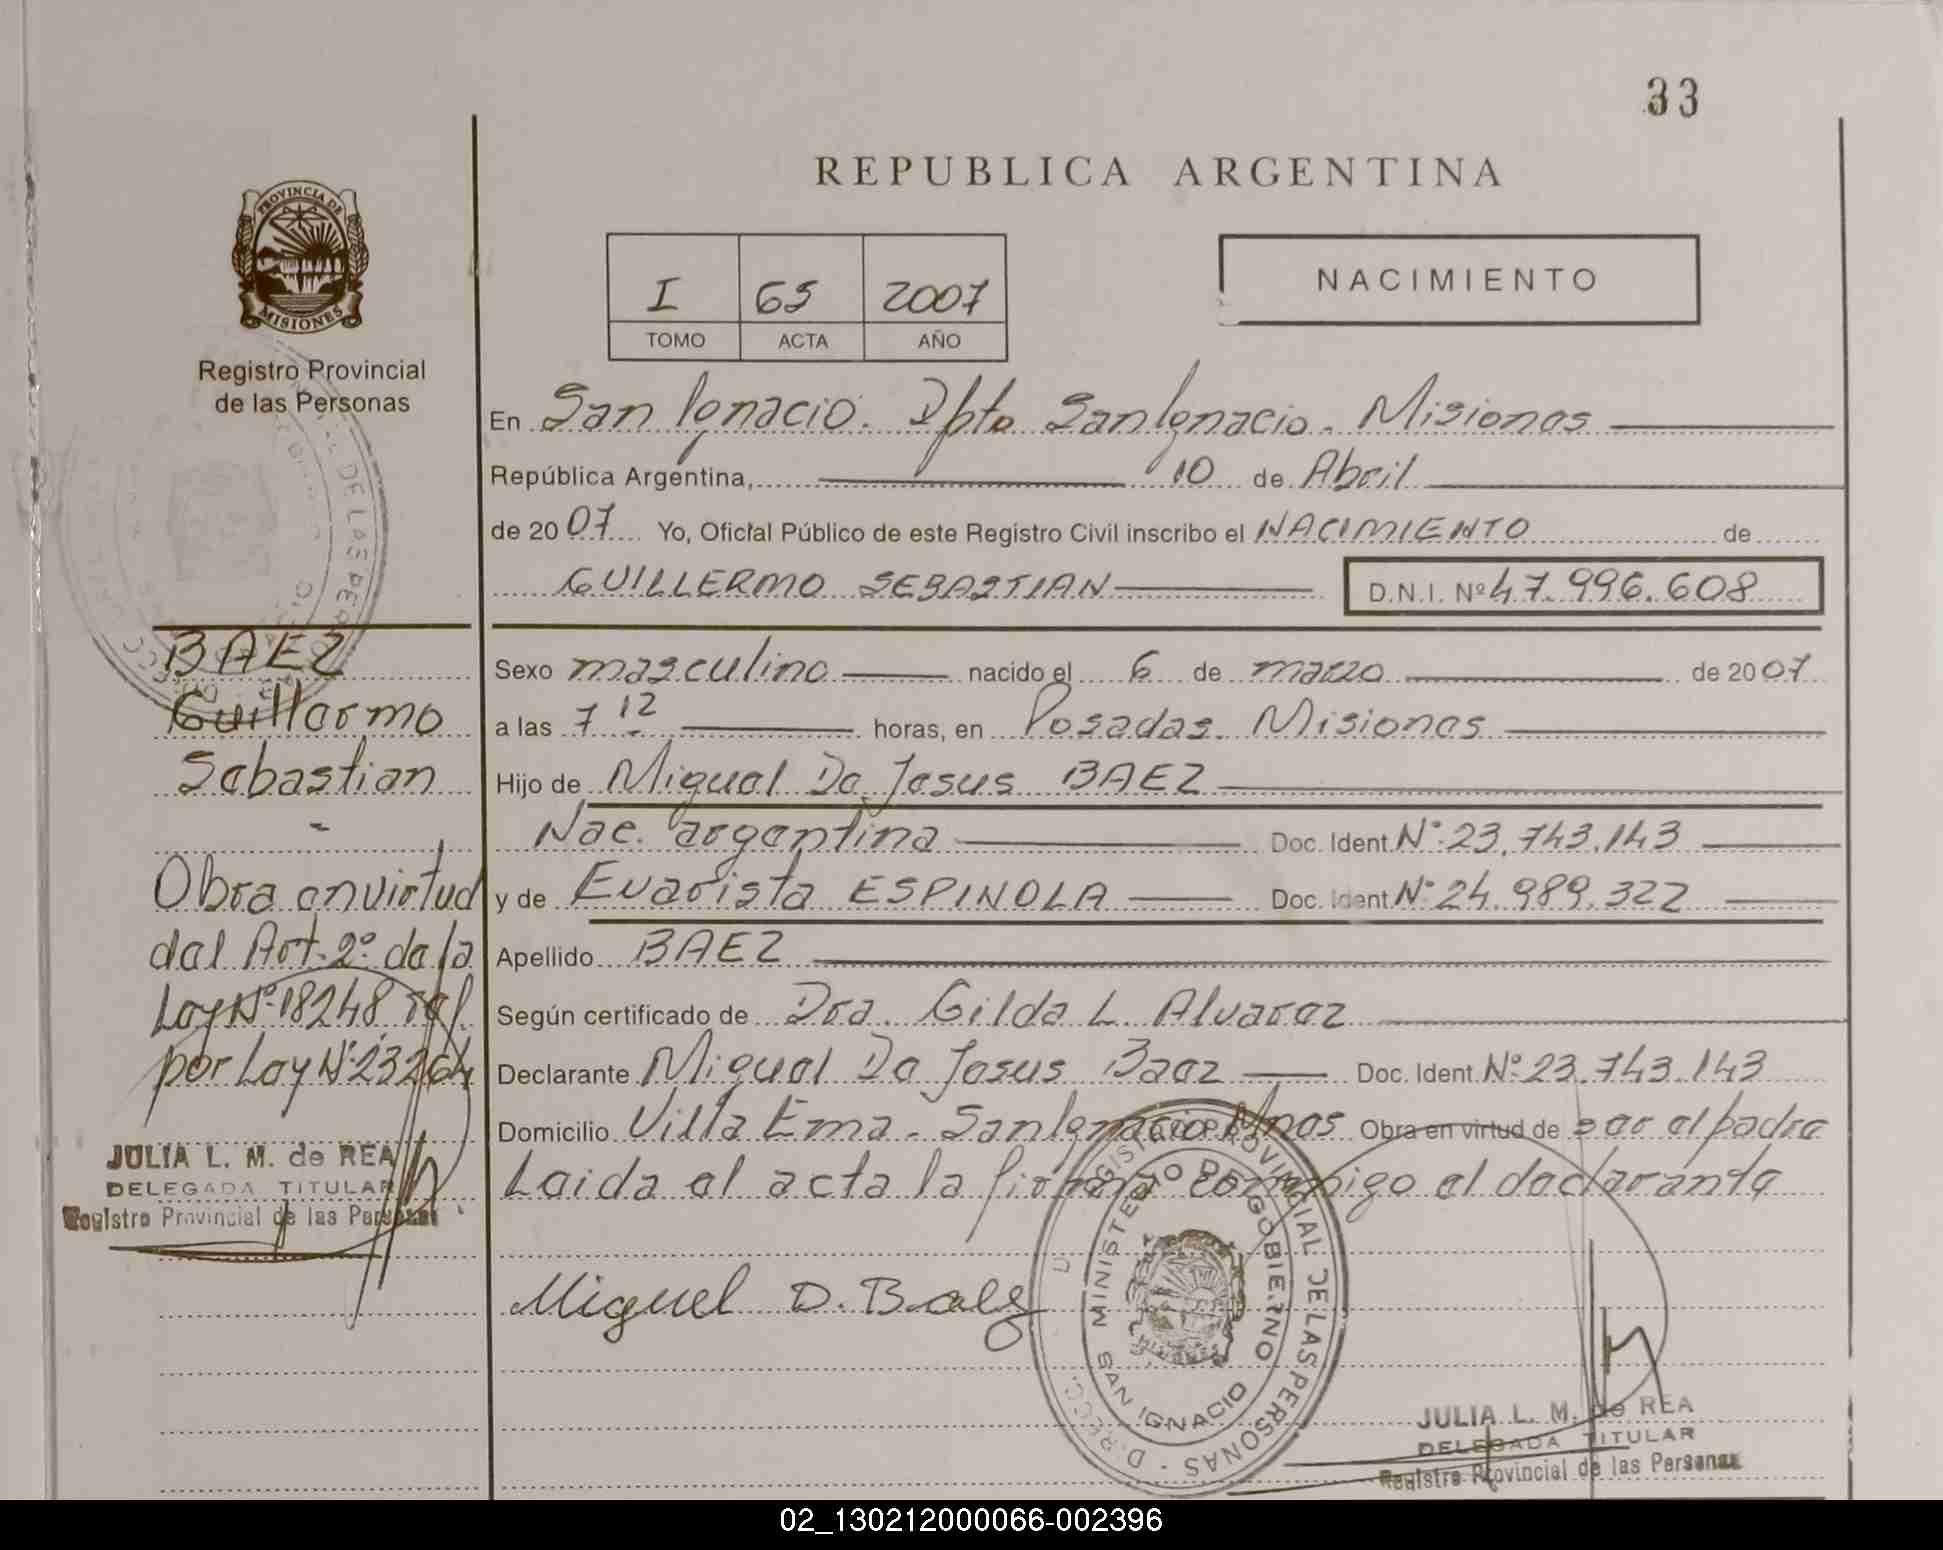 33
REPUBLICA ARGENTINA
PROVINCIA DE
MISIONES
Registro Provincial
de las Personas
I 65 2007
TOMO ACTA AÑO
NACIMIENTO
En San Ignacio. Dpto San Ignacio. Misiones
República Argentina, 10 de Abril
de 2007 Yo, Oficial Público de este Registro Civil inscribo el NACIMIENTO de
GUILLERMO SEBASTIAN D.N.I. Nº 47.996.608
Sexo masculino nacido el 6 de marzo de 2007
a las 7 12 horas, en Posadas. Misiones
Hijo de Miguel De Jesus BAEZ
Nac. argentina Doc. Ident. Nº 23.743.143
y de Evarista ESPINOLA Doc. Ident Nº 24.989.322
Apellido BAEZ
Según certificado de Dra. Gilda L. Alvarez
Declarante Miguel De Jesus Baez Doc. Ident. Nº 23.743.143
Domicilio Villa Ema - San Ignacio Mnes Obra en virtud de ser el padre
Leida el acta la firma conmigo el declarante
Miguel D. Baez
BAEZ
Guillermo
Sebastian
-
Obra en virtud
del Art. 2º de la
Ley Nº 18248 ref.
por Ley Nº 23264
JULIA L. M. de REA
DELEGADA TITULAR
Registro Provincial de las Personas
MINISTERIO DE GOBIERNO
SAN IGNACIO
REGISTRO PROVINCIAL DE LAS PERSONAS
JULIA L. M. de REA
DELEGADA TITULAR
Registro Provincial de las Personas
02_130212000066-002396